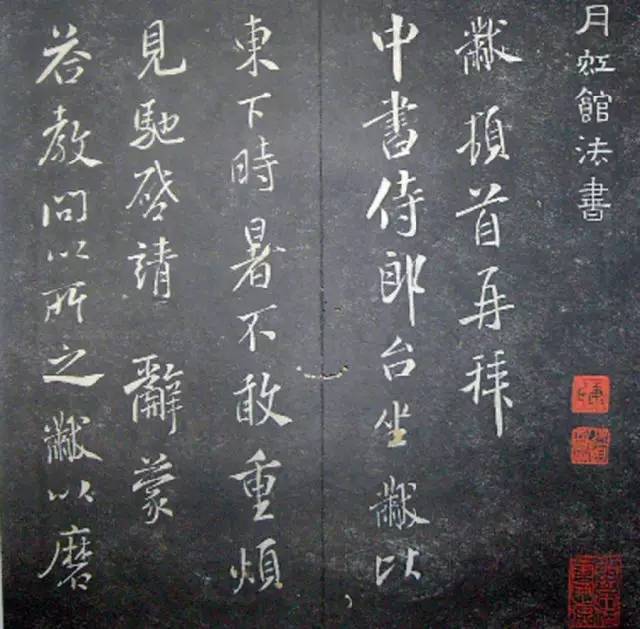 月虹館法書
黻頓首再拜
中書侍郎台坐黻以
東下時暑不敢重煩
見馳啓請辭蒙
荅教問以所之黻以磨